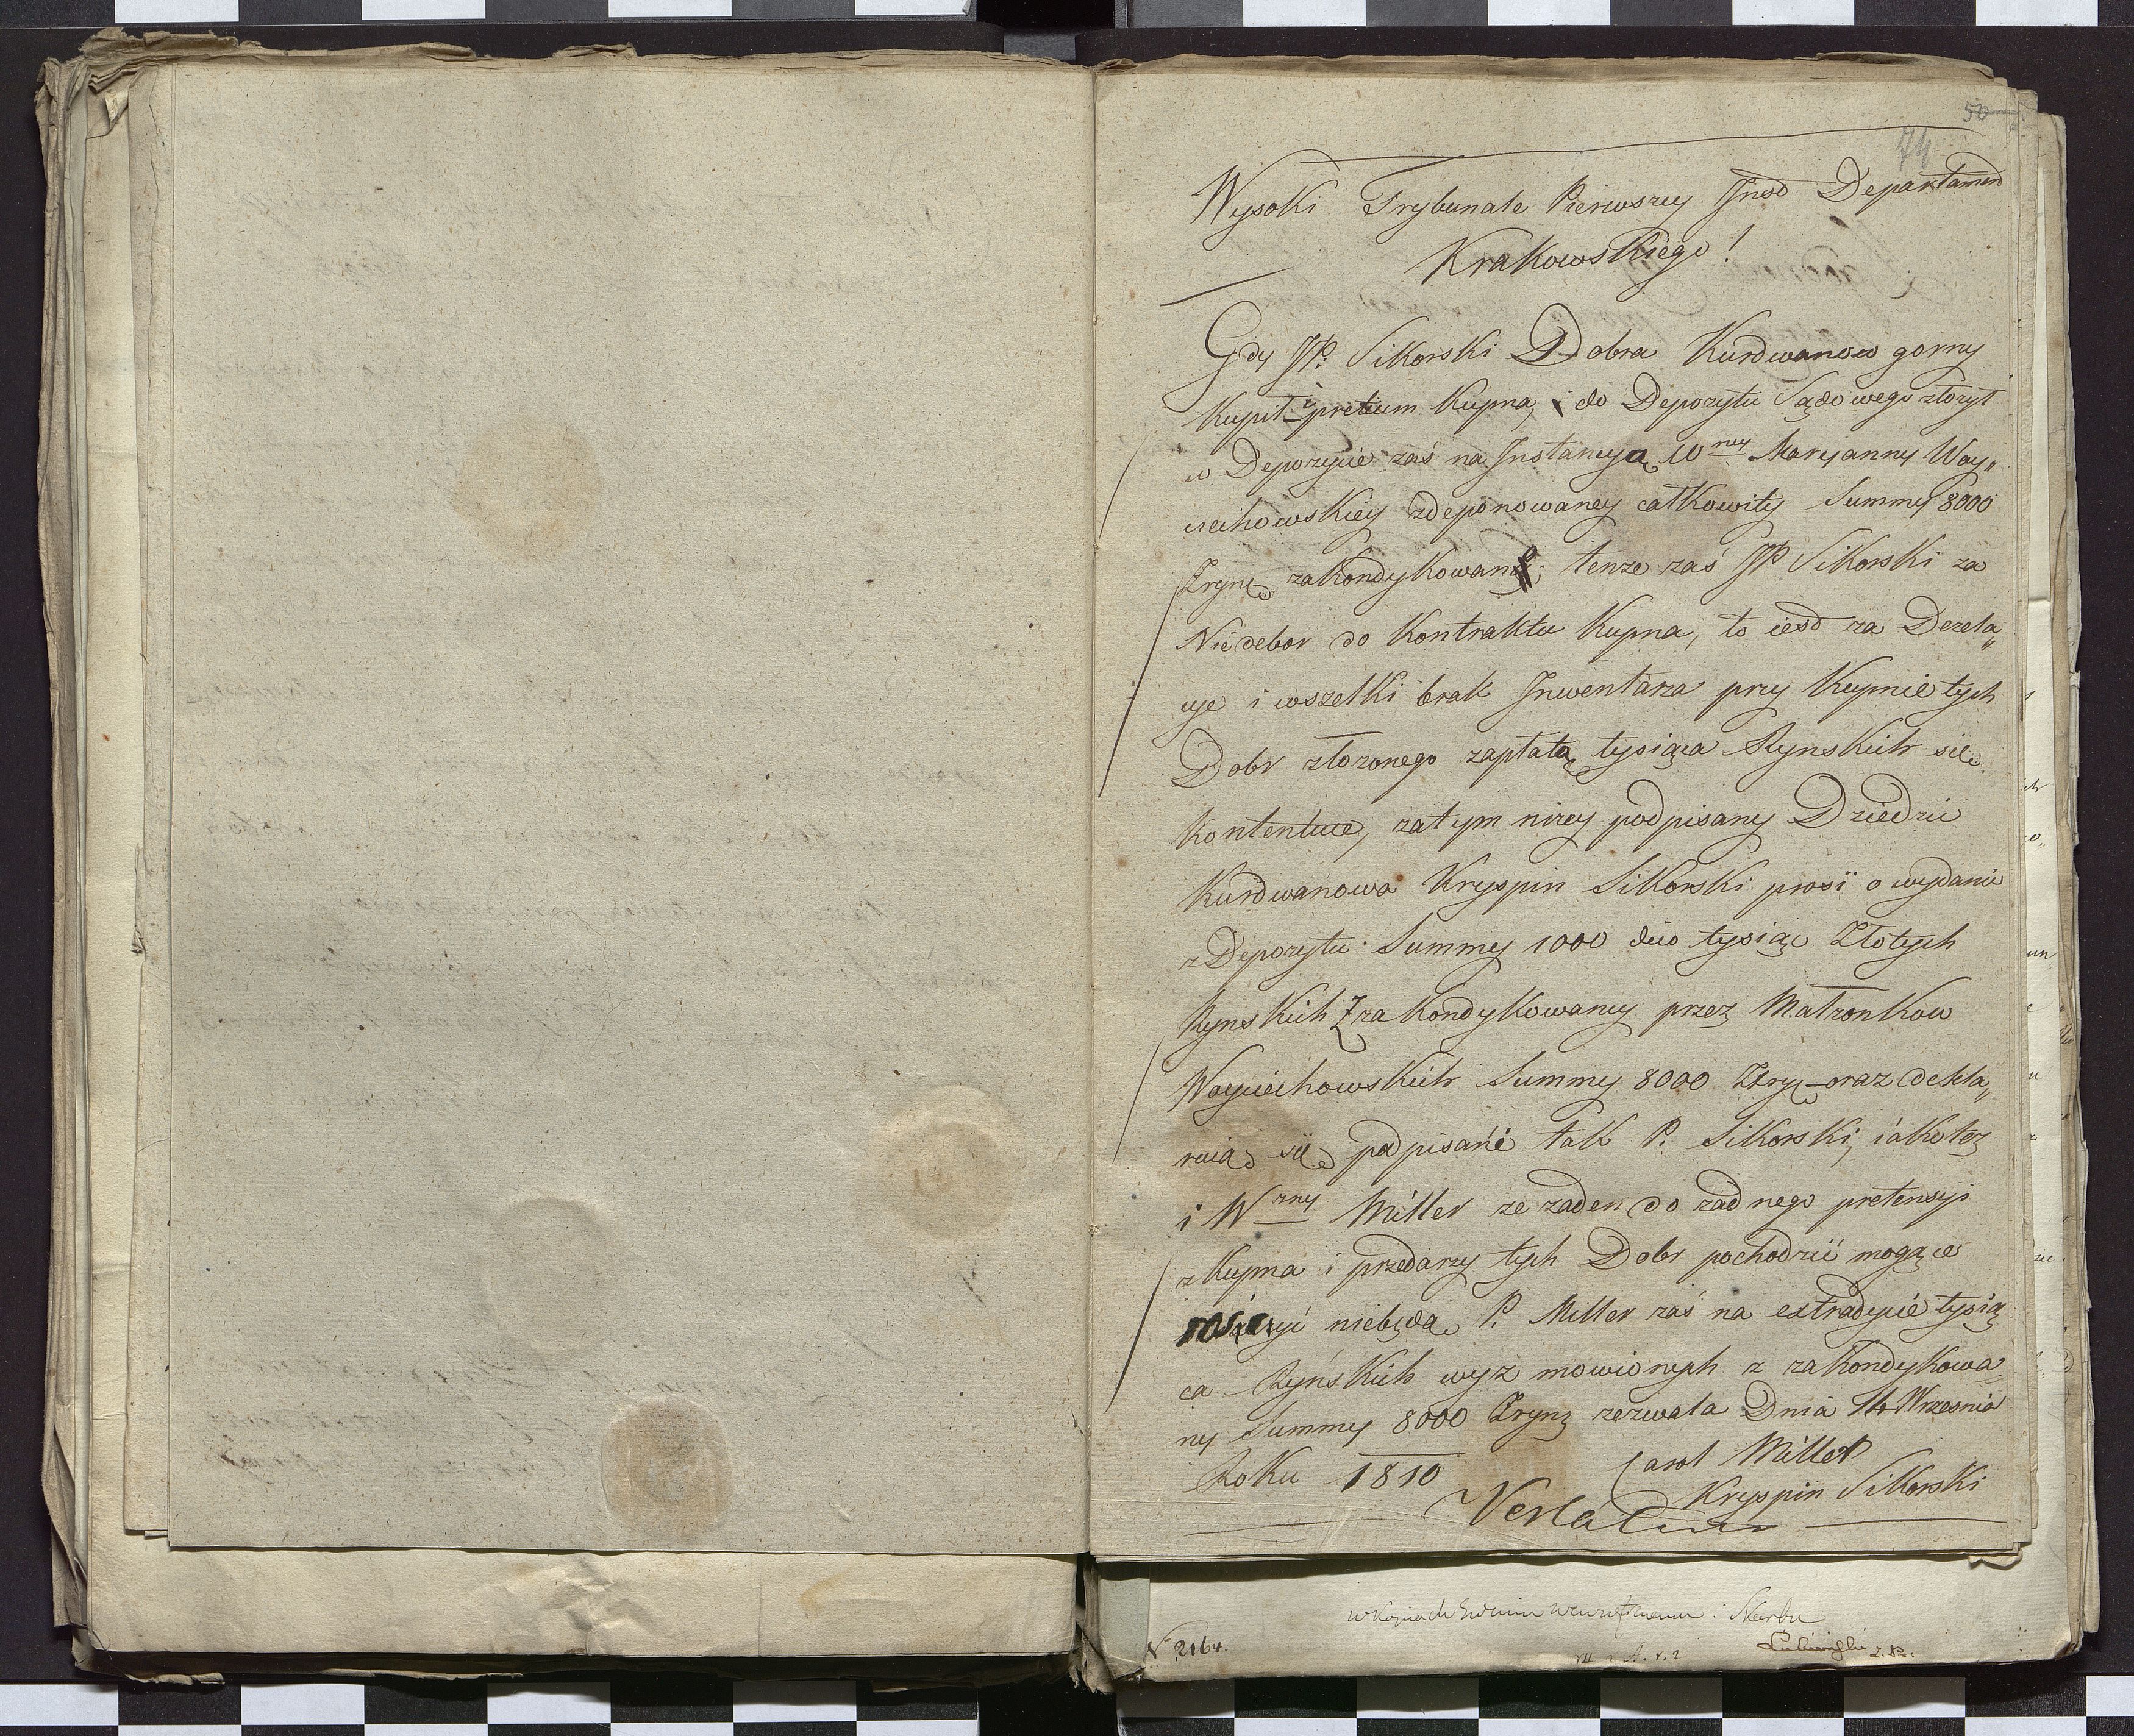 50
74
Wysoki Trybunale Pierwszey Inst Departament
Krakowskiego!
Gdy JP. Sikorski Dobra Kurdwanow gorny
Kupił i pretium Kupna, i do Depozytu Sądowego złozył
w Depozycie zaś na Instancyą Wney Maryanny Woy„
ciechowskiey zdeponowaney całkowity Summy 8000
Zryn zakondykowane; tenze zaś JP Sikorski za
Niedebor do Kontraktu Kupna, to iest za Dezela„
cye i wszelki brak Inwentarza przy Kupnie tych
Dobr złozonego zapłatą tysiąca Rynskich się
kontentuie, zatym nizey podpisany Dziedzic
Kurdwanowa Kryspin Sikorski prosi o wydanie
z Depozytu Summy 1000 dico tysiąc Złotych
Rynskich z zakondykowaney przez Małzonkow
Woyciechowskich Summy 8000 Ztry oraz dekla„
ruią się podpisani tak P. Sikorski, iakotez
i Wzny Miller ze zaden do zadnego pretensyi
z Kupna i przedarzy tych Dobr pochodzić mogące
rościć niebędą P. Miller zaś na extradycie tysią
ca Ryńskich wyz mowionych z zakondykowa„
ny Summy 8000 Zryn zezwala Dnia 14 Wrzesnia
Roku 1810
Carol Miller
Kryspin Sikorski
Verlatur
N 2164.